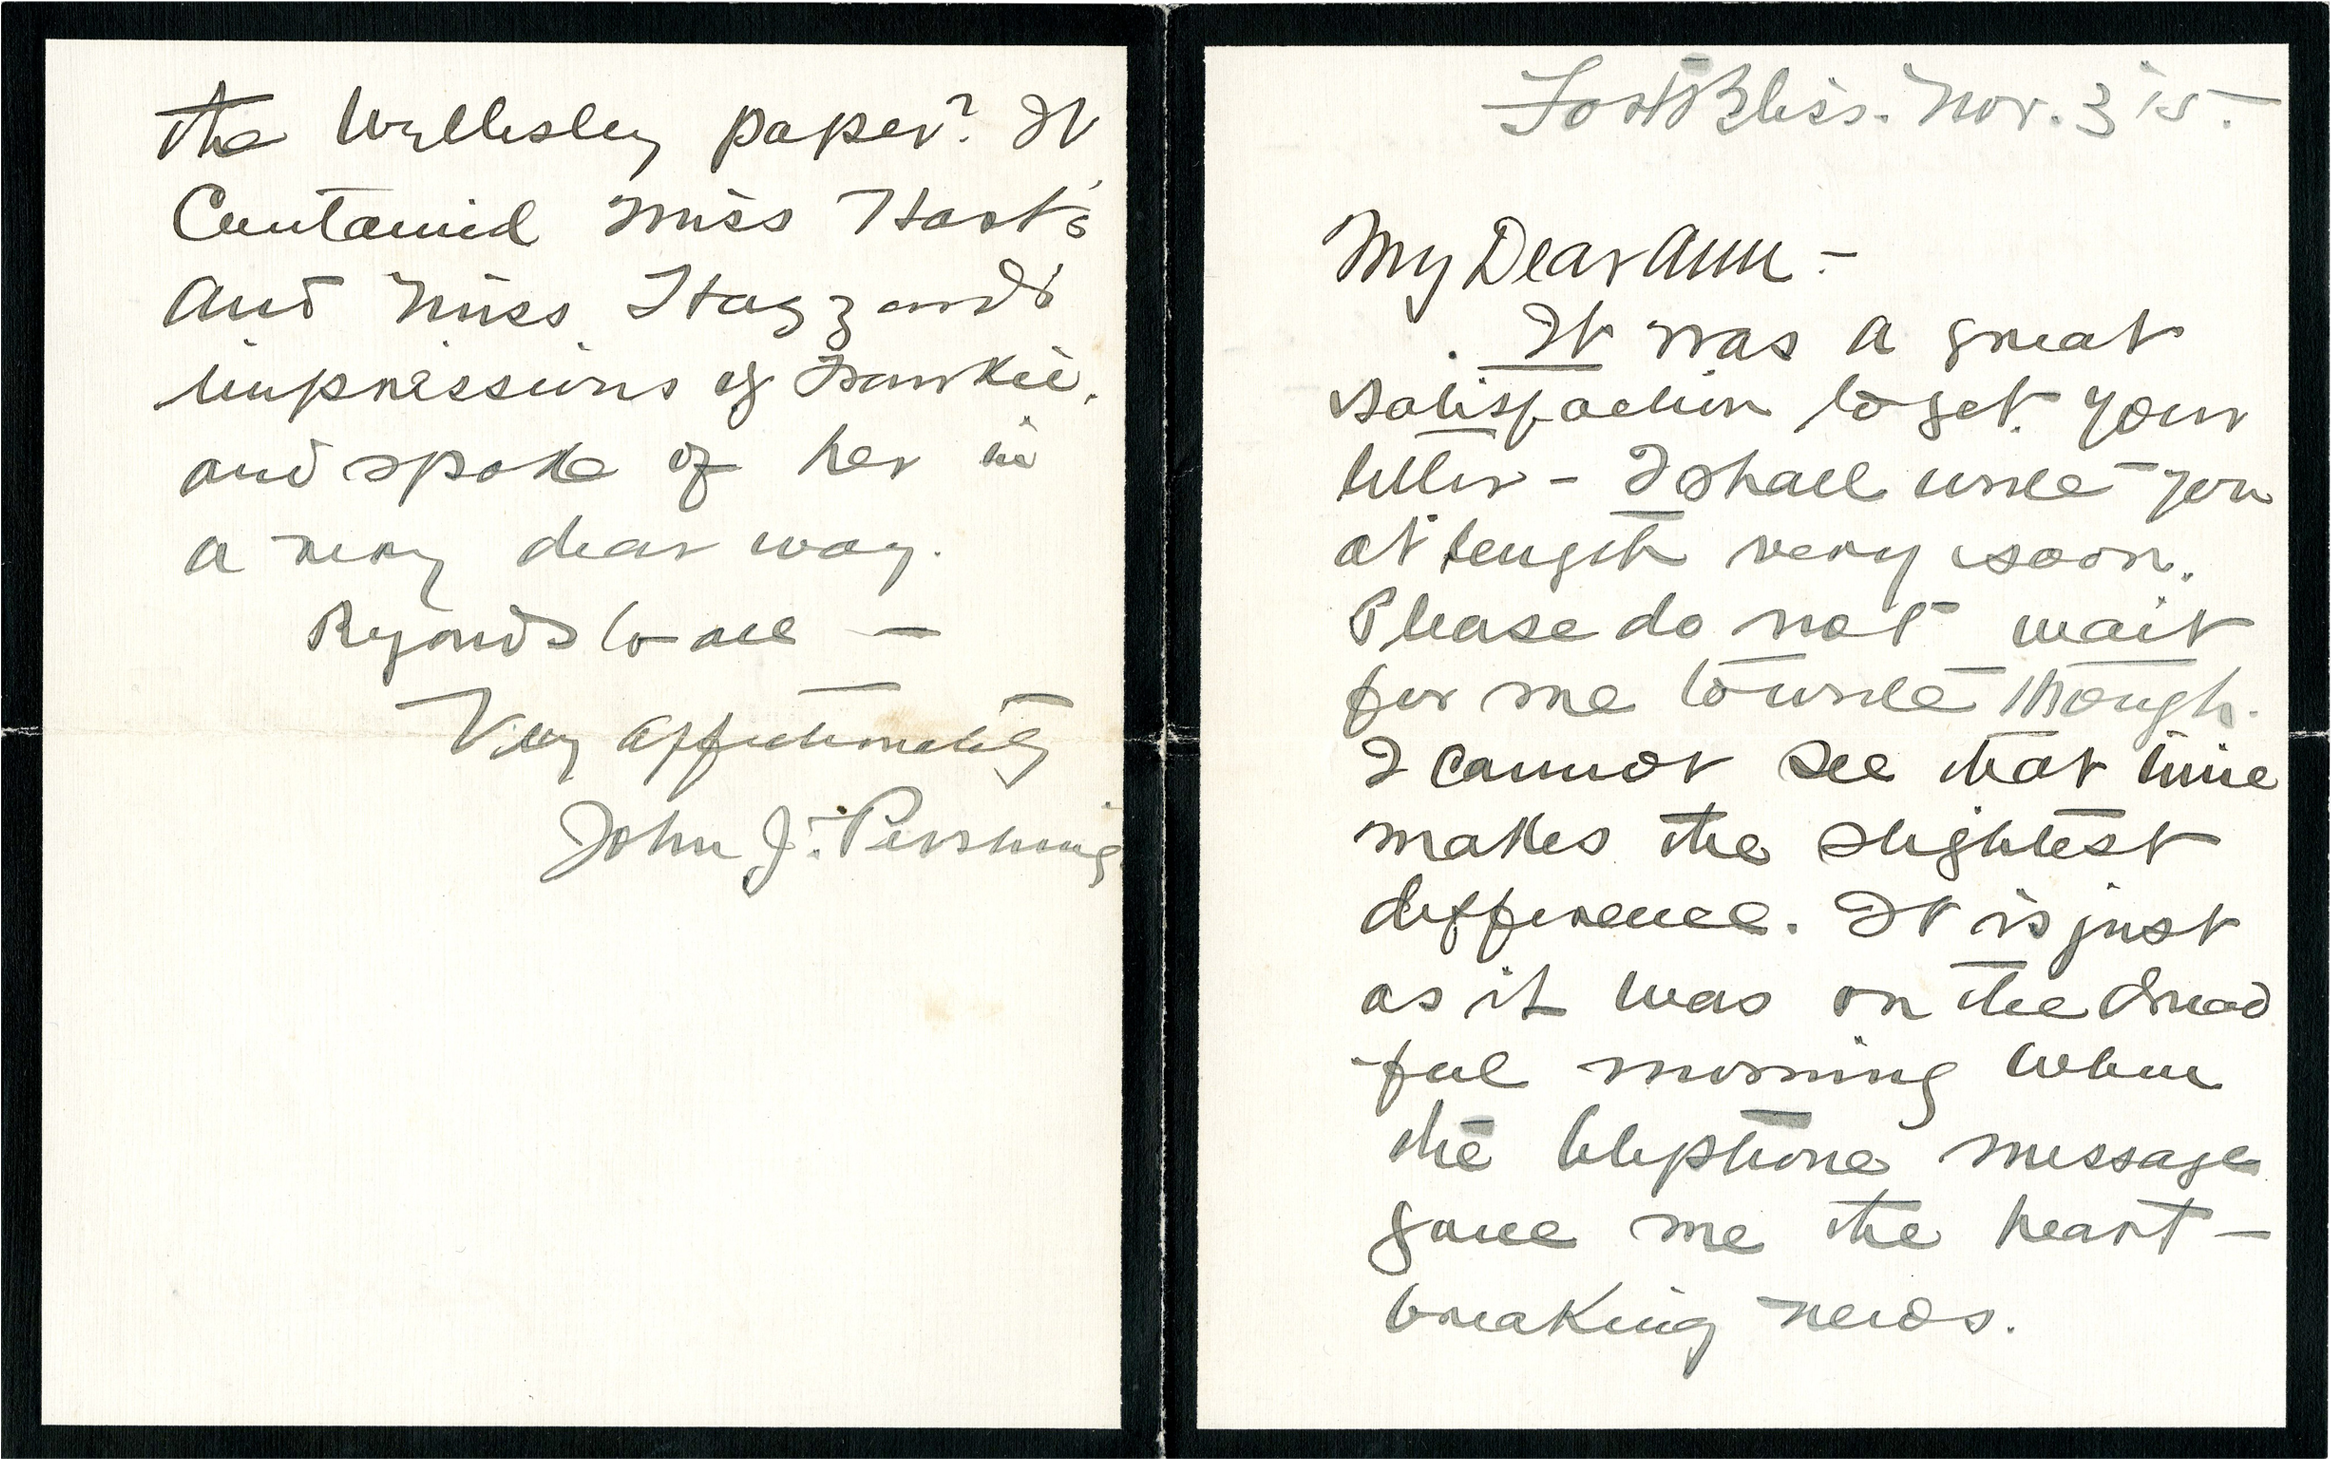 Fort Bliss. Nov. 3 '15.
My Dear Ann -
It was a great
satisfaction to get your
letter - I shall write you
at length very soon.
Please do not wait
for me to write though.
I cannot see that time
makes the slightest
difference. It is just
as it was on the dread
-ful morning when
the telephone message
gave me the heart-
breaking news.
the Wellesley paper? It
Contained Miss Hart's
and Miss Hazzard's
impressions of Frankie.
and spoke of her in
a very dear way.
Regards to all —
Very affectionately
John J. Pershing